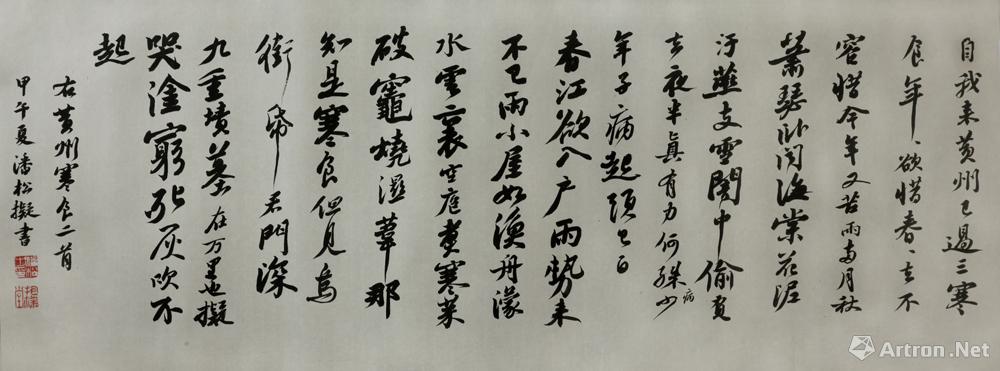 自我来黄州已過三寒
食年、欲惜春、去不
容惜今年又苦雨兩月秋
蕭瑟卧聞海棠花泥
汙燕支雪闇中偷負
去夜半真有力何殊少
病
年子病起頭已白
春江欲入户雨勢来
不已雨小屋如漁舟濛
水雲裏空庖煮寒菜
破竈燒濕葦那
知是寒食但見烏
銜帋君門深
九重墳墓在万里也擬
哭塗窮死灰吹不
起
右黄州寒食二首
甲午夏潘松擬書
Artron.Net